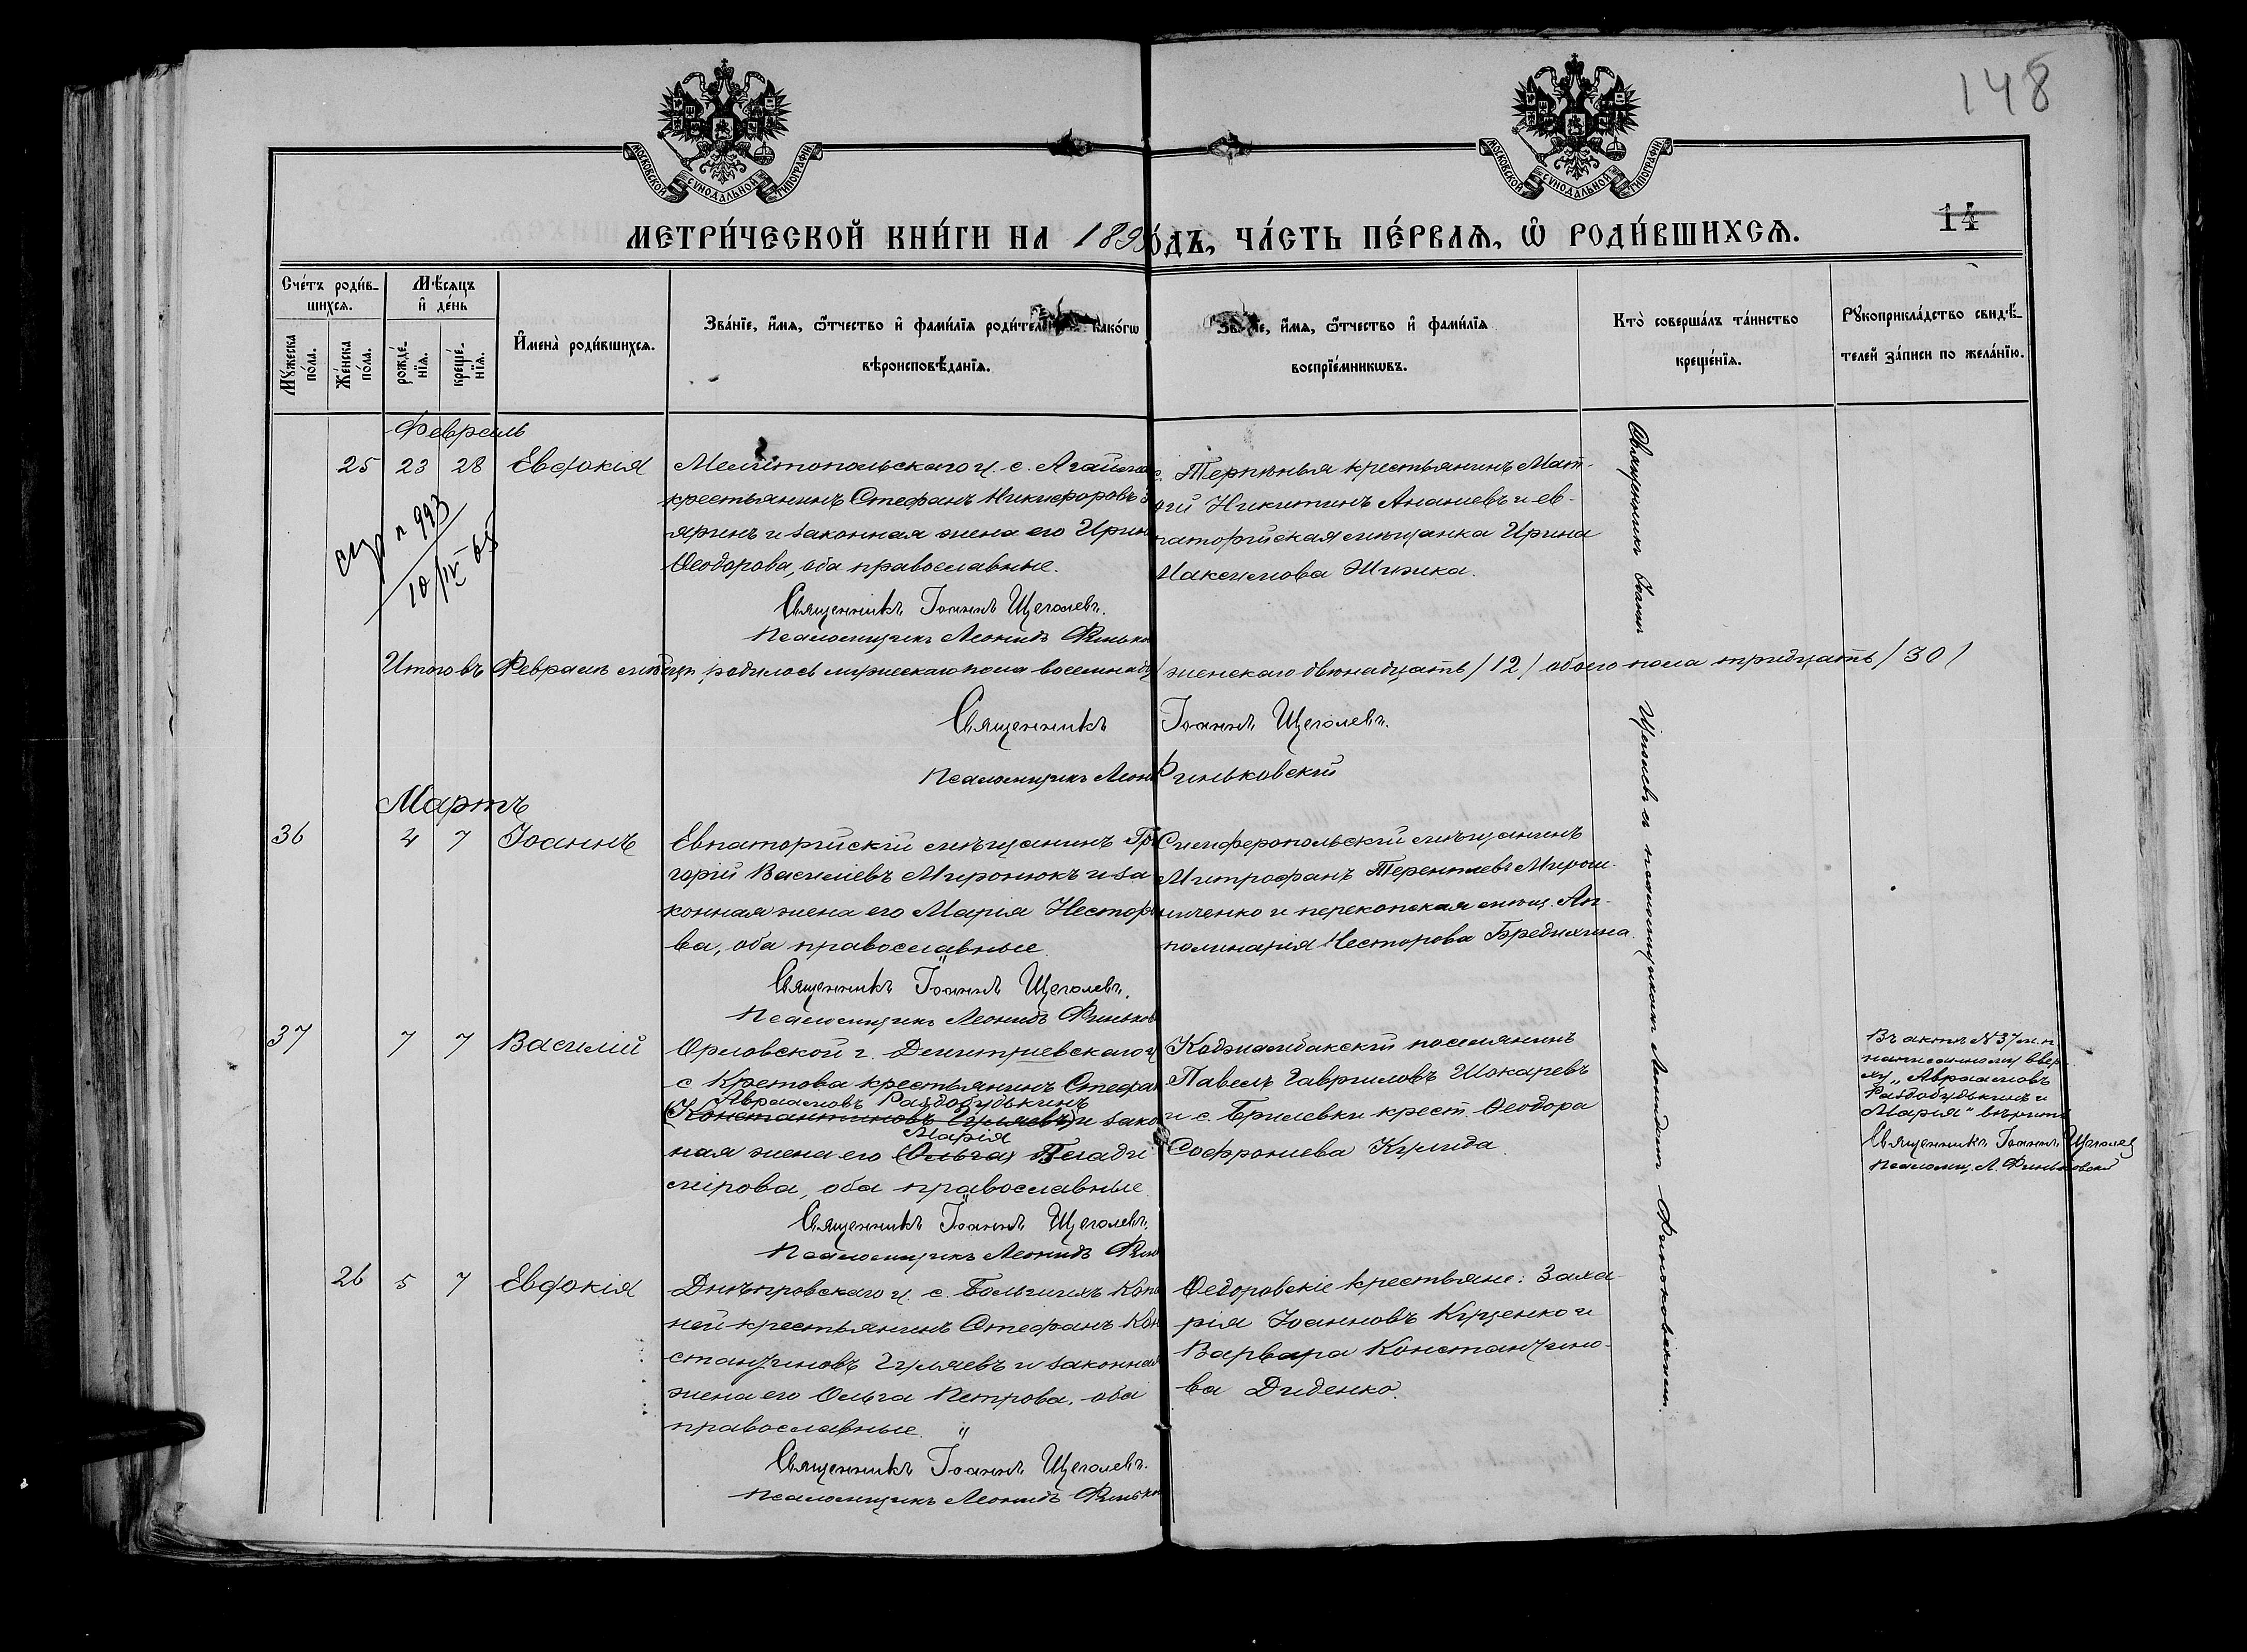 148
МОСКОВСКОЙ СУНОДАЛЬНОЙ ТИПОГРАФІИ
МОСКОВСКОЙ СУНОДАЛЬНОЙ ТИПОГРАФІИ
МЕТРИ́ЧЕСКОЙ КНИ́ГИ НА 189 О́ДЪ, ЧА́СТЬ ПЕ́РВАѦ, Ѡ҆ РОДИ́ВШИХСѦ.
14
Сче́тъ роди́в-
шихсѧ.
Мꙋ́жеска по́ла.
Же́нска по́ла.
Мѣ́сѧцъ
и҆ де́нь
рожде́-нїѧ.
креще́-нїѧ.
И҆мена̀ роди́вшихсѧ.
Зва́нїе, и҆́мѧ, ѻ҆́тчество и҆ фами́лїѧ роди́телей како́гѡ
вѣроисповѣ́данїѧ.
и҆́мѧ, ѻ҆́тчество и҆ фами́лїѧ
воспрїе́мникѡвъ.
Кто̀ соверша́лъ та́инство
креще́нїѧ.
Рꙋкоприкла́дство свидѣ́-
телей за́писи по жела́нїю.
Февраль
25 23 28 Евдокія
Мелитопольскаго у. с.
крестьянинъ Стефанъ Никифоровъ
яринъ и законная жена его Ирин
Ѳеодорова, оба православные.
Священникъ Іоаннъ Щеголевъ.
Псаломщикъ Леонидъ Финьков
с. Терпѣнья крестьянинъ Мат-
ѳій Никитинъ Ананіевъ и ев-
паторійская мѣщанка Ирина
Максимова Жижка.
№ 993
10/IV 65
Итого въ Февралѣ мѣсяцѣ родилось мужескаго пола восемнадц женскаго двѣнадцать /12/ обоего пола тридцать /30/
Священникъ Іоаннъ Щеголевъ.
Псаломщикъ Леони Финьковскій
Мартъ
36 4 7 Іоаннъ
Евпаторійскій мѣщанинъ Гри
горій Василіевъ Миронюкъ и за
конная жена его Марія Несторо
ва, оба православные.
Священникъ Іоаннъ Щеголевъ.
Псаломщикъ Леонидъ Финьков
Симферопольскій мѣщанинъ
Митрофанъ Терентіевъ Мирош-
ниченко и перекопская мѣщ. Ап-
полинарія Несторова Бредихина.
37 7 7 Василій
Орловской г. Дмитріевскаго у
с. Кретова крестьянинъ Стефан
Авраамовъ Раздобудькинъ
(Константиновъ Гуляевъ) и закон
Марія
ная жена его (Ольга) Влади
мірова, оба православные.
Священникъ Іоаннъ Щеголевъ.
Псаломщикъ Леонидъ Финь
Коджамбакскій поселянинъ
Павелъ Гавриловъ Шокаревъ
и с. Брилевки крест. Ѳеодора
Софроніева Кулида.
Въ актѣ № 37 м. п.
написанному ввер
ху „Авраамовъ
Раздобудькинъ и
Марія" вѣрить
Священникъ Іоаннъ Щеголев
Псаломщ. Л. Финьковскій
26 5 7 Евдокія
Днѣпровскаго у. с. Большихъ Копа
ней крестьянинъ Стефанъ Кон
стантиновъ Гуляевъ и законная
жена его Ольга Петрова, оба
православные.
Священникъ Іоаннъ Щеголевъ.
Псаломщикъ Леонидъ Финьков
Ѳедоровскіе крестьяне: Заха
рія Іоанновъ Куценко и
Варвара Константино-
ва Диденко.
Священникъ Іоаннъ Щеголевъ съ псаломщикомъ Леонидомъ Финьковскимъ.